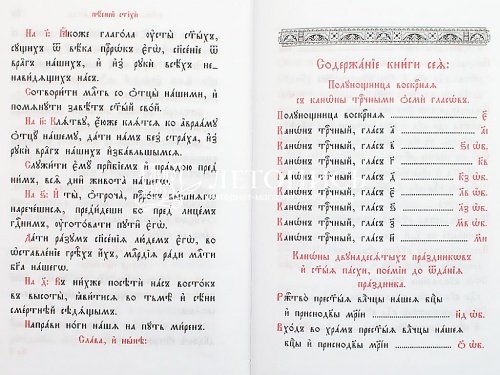 Пѣсній стіхѝ
На і҃: Ꙗ҆́коже глаго́ла ᲂу҆сты̀ ст҃ы́хъ,
сꙋ́щихъ ѿ вѣ́ка прⷪ҇рѡ́къ є҆гѡ̀, сп҃се́нїе ѿ
вра̑гъ на́шихъ, и҆ и҆з̾ рꙋкѝ всѣ́хъ не-
нави́дѧщихъ на́съ.
Сотвори́ти млⷭ҇ть со ѻ҆тцы̑ на́шими, и҆
помѧнꙋ́ти завѣ́тъ ст҃ы́й сво́й.
На и҃: Клѧ́твꙋ, є҆́юже клѧ́тсѧ ко а҆враа́мꙋ
ѻ҆тцꙋ̀ на́шемꙋ, да́ти на́мъ без̾ стра́ха, и҆з̾
рꙋкѝ вра̑гъ на́шихъ и҆зба́вльшымсѧ.
Слꙋжи́ти є҆мꙋ̀ прⷣпⷣбїемъ и҆ пра́вдою пред̾
ни́мъ, всѧ̑ дни̑ живота̀ на́шегѡ.
На ѕ҃: И҆ ты̀, ѻ҆троча̀, прⷪ҇ро́къ вы́шнѧгѡ
нарече́шисѧ, пред̾и́деши бо пред̾ лице́мъ
гдⷭ҇нимъ, ᲂу҆гото́вати пꙋти̑ є҆гѡ̀.
Да́ти ра́зꙋмъ сп҃се́нїѧ лю́демъ є҆гѡ̀, во
ѡ҆ставле́нїе грѣ̑хъ и҆́хъ, млⷭ҇рдїѧ ра́ди млⷭ҇ти
бг҃а на́шегѡ.
На д҃: Въ ни́хже посѣтѝ на́съ восто́къ
съ высоты̀, ꙗ҆ви́тисѧ во тьмѣ̀ и҆ сѣ́ни
сме́ртнѣй сѣдѧ́щымъ.
Напра́ви но́ги на́шѧ на пꙋ́ть ми́ренъ.
Сла́ва, и҆ ны́нѣ:
Содержа́нїе кни́ги сеѧ̀:
Полꙋ́нощница воскрⷭ҇наѧ
съ канѡ́ны трⷪ҇чными ѻ҆смѝ гласѡ́въ.
Полꙋ́нощница воскрⷭ҇наѧ є҃
Канѡ́нъ трⷪ҇чный, гла́съ а҃
Канѡ́нъ трⷪ҇чный, гла́съ в҃
Канѡ́нъ трⷪ҇чный, гла́съ г҃
Канѡ́нъ трⷪ҇чный, гла́съ д҃
Канѡ́нъ трⷪ҇чный, гла́съ є҃
Канѡ́нъ трⷪ҇чный, гла́съ ѕ҃
Канѡ́нъ трⷪ҇чный, гла́съ з҃
Канѡ́нъ трⷪ҇чный, гла́съ и҃
Канѡ́ны двꙋна́десѧтыхъ пра́здникѡвъ
и҆ ст҃ы́ѧ па́схи, поє́мїи до ѿда́нїѧ
пра́здника.
Ржⷭ҇тво̀ прест҃ы́ѧ влⷣчцы на́шеѧ бцⷣы
и҆ приснодв҃ы мр҃і́и
Вхо́дъ во хра́мъ прест҃ы́ѧ влⷣчцы на́шеѧ
бцⷣы и҆ приснодв҃ы мр҃і́и